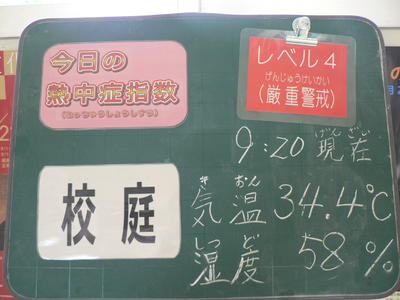 今日の
熱中症指数
(ねっちゅうしょうしすう)
レベル4
げんじゅうけいかい
(厳重警戒)
9:20 現在
げんざい
校庭
きおん
気温 34.4℃
しつど
湿度 58%